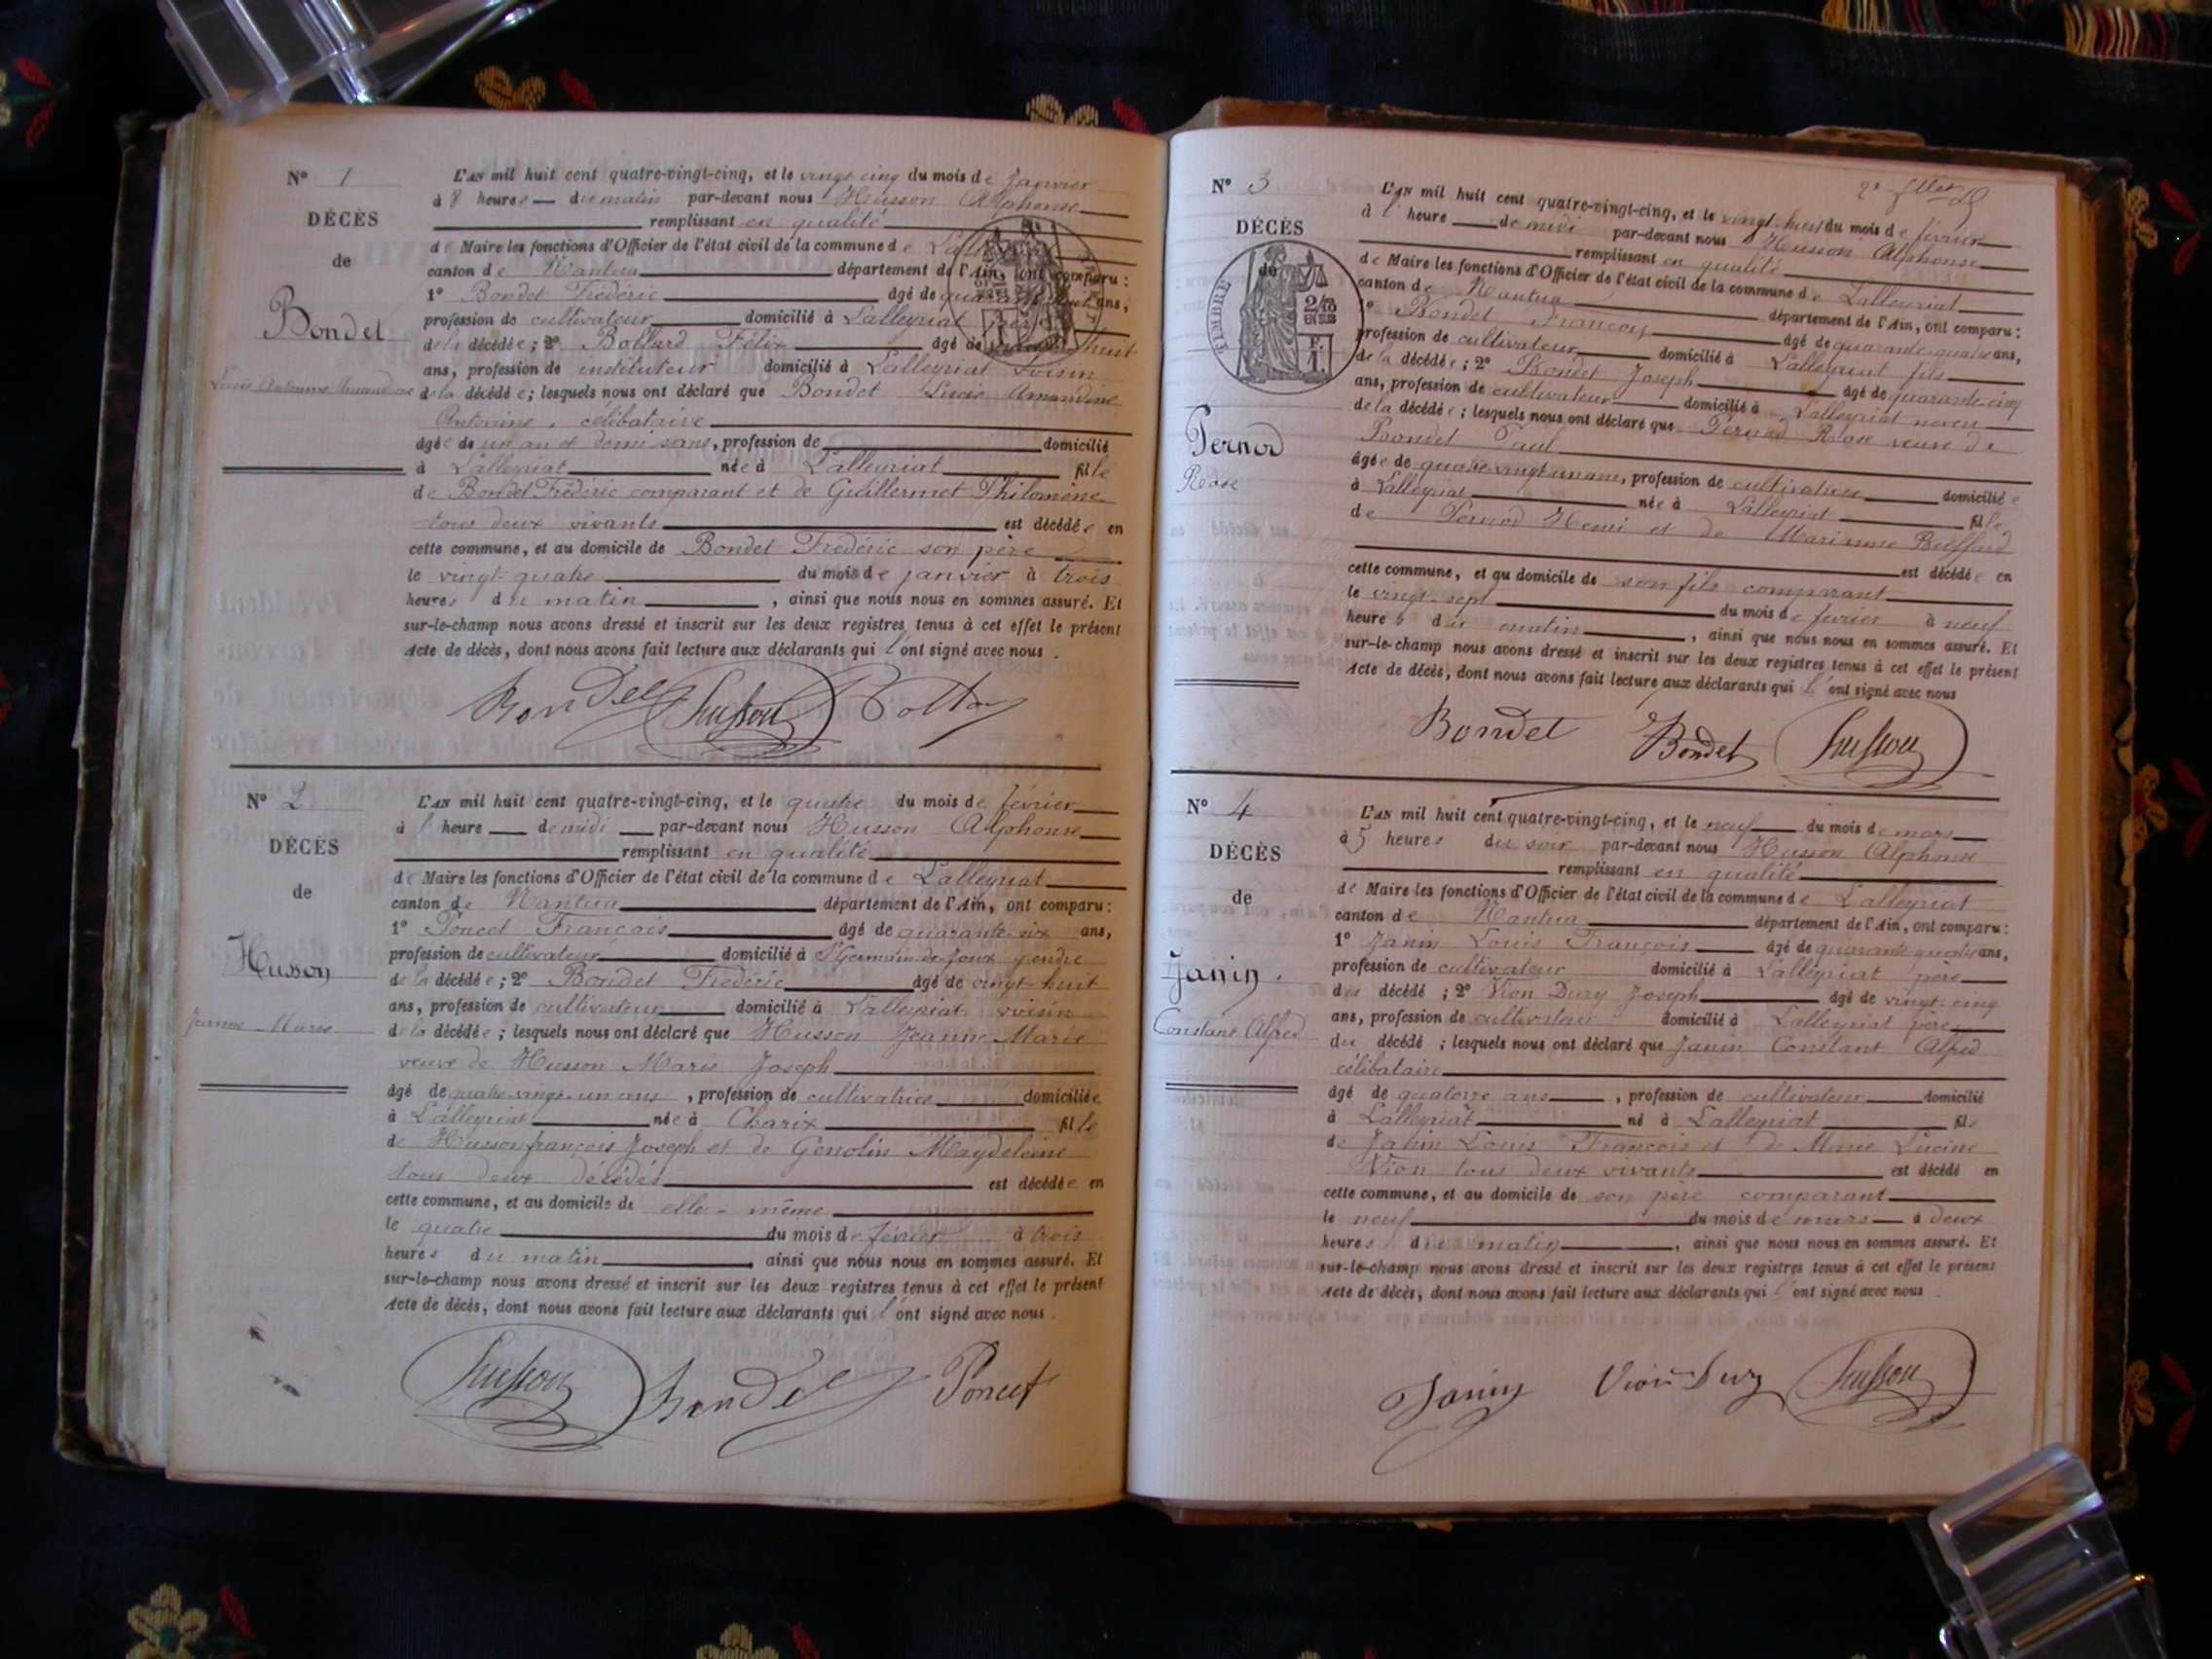 N° 1
DÉCÈS
de
Bondet
Lucie Antonine Amandine
L'AN mil huit cent quatre-vingt-cinq, et le vingt cinq du mois de Janvier
à 8 heures du matin par-devant nous Husson Alphonse
remplissant en qualité
de Maire les fonctions d'Officier de l'état civil de la commune de
canton de Nantua département de l'Ain, ont comparu :
1° Bondet Frédéric âgé de ans,
profession de cultivateur domicilié à Lalleyriat père
de la décédée ; 2° Bollard Félix âgé de huit
ans, profession de instituteur domicilié à Lalleyriat voisin
de la décédée ; lesquels nous ont déclaré que Bondet Lucie Amandine
Antonine, célibataire
âgée de un an et demi sans, profession de domicilié
à Lalleyriat née à Lalleyriat fille
de Bondet Frédéric comparant et de Guillermet Philomène
tous deux vivants est décédée en
cette commune, et au domicile de Bondet Frédéric son père
le vingt-quatre du mois de janvier à trois
heures du matin, ainsi que nous nous en sommes assuré. Et
sur-le-champ nous avons dressé et inscrit sur les deux registres tenus à cet effet le présent
Acte de décès, dont nous avons fait lecture aux déclarants qui l'ont signé avec nous.
Bondet Husson
N° 2
DÉCÈS
de
Husson
Jeanne Marie
L'AN mil huit cent quatre-vingt-cinq, et le quatre du mois de février
à 1 heure de midi par-devant nous Husson Alphonse
remplissant en qualité
de Maire les fonctions d'Officier de l'état civil de la commune de Lalleyriat
canton de Nantua département de l'Ain, ont comparu :
1° Poncet François âgé de quarante-six ans,
profession de cultivateur domicilié à St Germain de Joux gendre
de la décédée ; 2° Bondet Frédéric âgé de vingt-huit
ans, profession de cultivateur domicilié à Lalleyriat voisin
de la décédée ; lesquels nous ont déclaré que Husson Jeanne Marie
veuve de Husson Marie Joseph
âgé de quatre-vingt-un ans, profession de cultivatrice domiciliée
à Lalleyriat née à Charix fille
de Husson françois Joseph et de Genolin Magdeleine
tous deux décédés est décédée en
cette commune, et au domicile de elle-même
le quatre du mois de février à trois
heures du matin, ainsi que nous nous en sommes assuré. Et
sur-le-champ nous avons dressé et inscrit sur les deux registres tenus à cet effet le présent
Acte de décès, dont nous avons fait lecture aux déclarants qui l'ont signé avec nous.
Husson Bondet Poncet
2e fllet
N° 3
DÉCÈS
de
TIMBRE
2/10
EN SUS
F.
1.
Pernod
Rose
L'AN mil huit cent quatre-vingt-cinq, et le vingt-huit du mois de février
à 1 heure de midi par-devant nous Husson Alphonse
remplissant en qualité
de Maire les fonctions d'Officier de l'état civil de la commune de Lalleyriat
canton de Nantua département de l'Ain, ont comparu :
1° Bondet François âgé de quarante-quatre ans,
profession de cultivateur domicilié à Lalleyriat fils
de la décédée ; 2° Bondet Joseph âgé de quarante-cinq
ans, profession de cultivateur domicilié à Lalleyriat neveu
de la décédée ; lesquels nous ont déclaré que Pernod Rose veuve de
Bondet Paul
âgée de quatre-vingt-un ans, profession de cultivatrice domiciliée
à Lalleyriat née à Lalleyriat fille
de Pernod Henri et de Marianne Buffard
est décédée en
cette commune, et au domicile de son fils comparant
le vingt-sept du mois de février à neuf
heures du matin, ainsi que nous nous en sommes assuré. Et
sur-le-champ nous avons dressé et inscrit sur les deux registres tenus à cet effet le présent
Acte de décès, dont nous avons fait lecture aux déclarants qui l'ont signé avec nous
Bondet Bondet Husson
N° 4
DÉCÈS
de
Janin.
Constant Alfred
L'AN mil huit cent quatre-vingt-cinq, et le neuf du mois de mars
à 5 heures du soir par-devant nous Husson Alphonse
remplissant en qualité
de Maire les fonctions d'Officier de l'état civil de la commune de Lalleyriat
canton de Nantua département de l'Ain, ont comparu :
1° Janin Louis François âgé de quarante quatre ans,
profession de cultivateur domicilié à Lalleyriat père
du décédé ; 2° Vion Dury Joseph âgé de vingt-cinq
ans, profession de cultivateur domicilié à Lalleyriat
du décédé ; lesquels nous ont déclaré que Janin Constant Alfred
célibataire
âgé de quatorze ans, profession de cultivateur domicilié
à Lalleyriat né à Lalleyriat fils
de Janin Louis François et de Marie Lucine
Vion tous deux vivants est décédé en
cette commune, et au domicile de son père comparant
le neuf du mois de mars à deux
heures du matin, ainsi que nous nous en sommes assuré. Et
sur-le-champ nous avons dressé et inscrit sur les deux registres tenus à cet effet le présent
Acte de décès, dont nous avons fait lecture aux déclarants qui l'ont signé avec nous.
Janin Vion Dury Husson